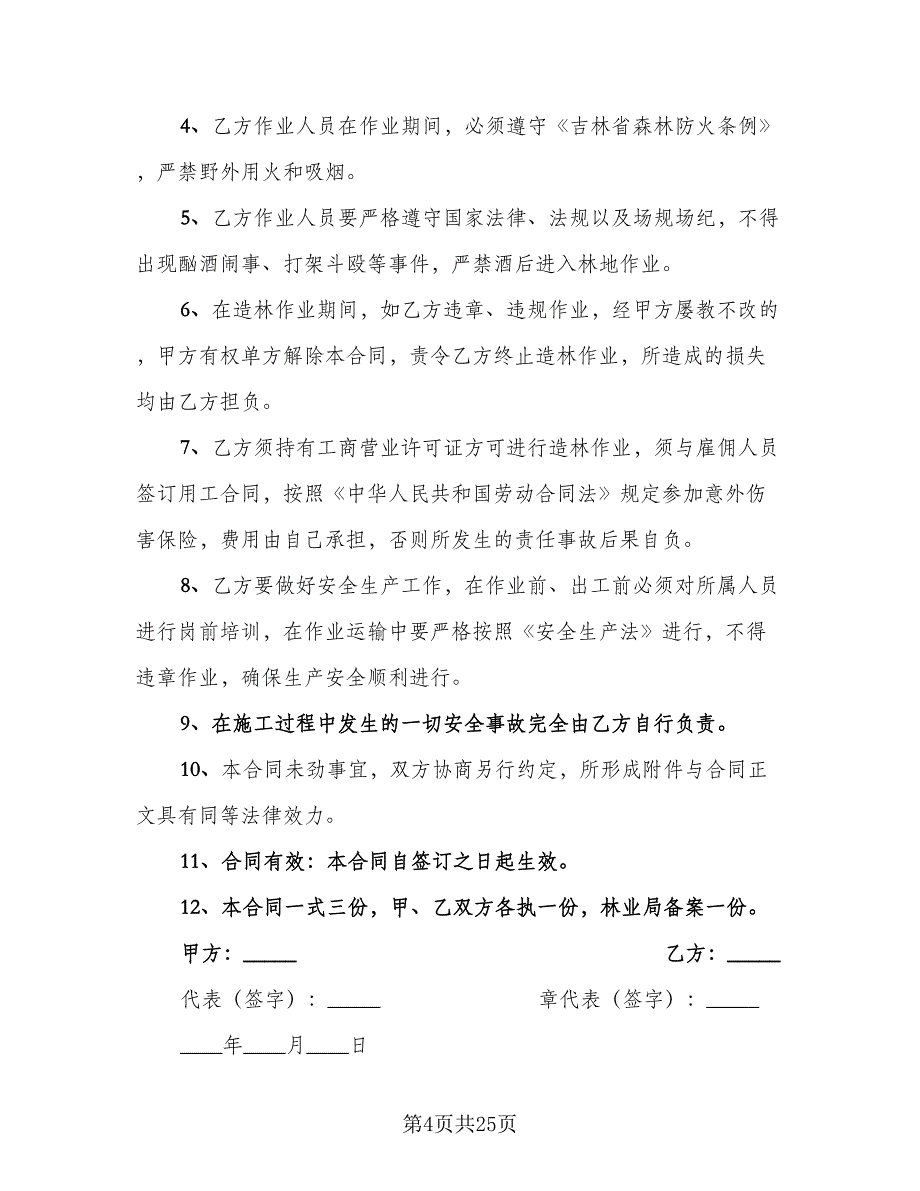 4、乙方作业人员在作业期间，必须遵守《吉林省森林防火条例》
，严禁野外用火和吸烟。
5、乙方作业人员要严格遵守国家法律、法规以及场规场纪，不得
出现酗酒闹事、打架斗殴等事件，严禁酒后进入林地作业。
6、在造林作业期间，如乙方违章、违规作业，经甲方屡教不改的
，甲方有权单方解除本合同，责令乙方终止造林作业，所造成的损失
均由乙方担负。
7、乙方须持有工商营业许可证方可进行造林作业，须与雇佣人员
签订用工合同，按照《中华人民共和国劳动合同法》规定参加意外伤
害保险，费用由自己承担，否则所发生的责任事故后果自负。
8、乙方要做好安全生产工作，在作业前、出工前必须对所属人员
进行岗前培训，在作业运输中要严格按照《安全生产法》进行，不得
违章作业，确保生产安全顺利进行。
9、在施工过程中发生的一切安全事故完全由乙方自行负责。
10、本合同未劲事宜，双方协商另行约定，所形成附件与合同正
文具有同等法律效力。
11、合同有效：本合同自签订之日起生效。
12、本合同一式三份，甲、乙双方各执一份，林业局备案一份。
甲方：_____ 乙方：_____
代表（签字）：_____ 章代表（签字）：_____
____年____月____日
第4页共25页